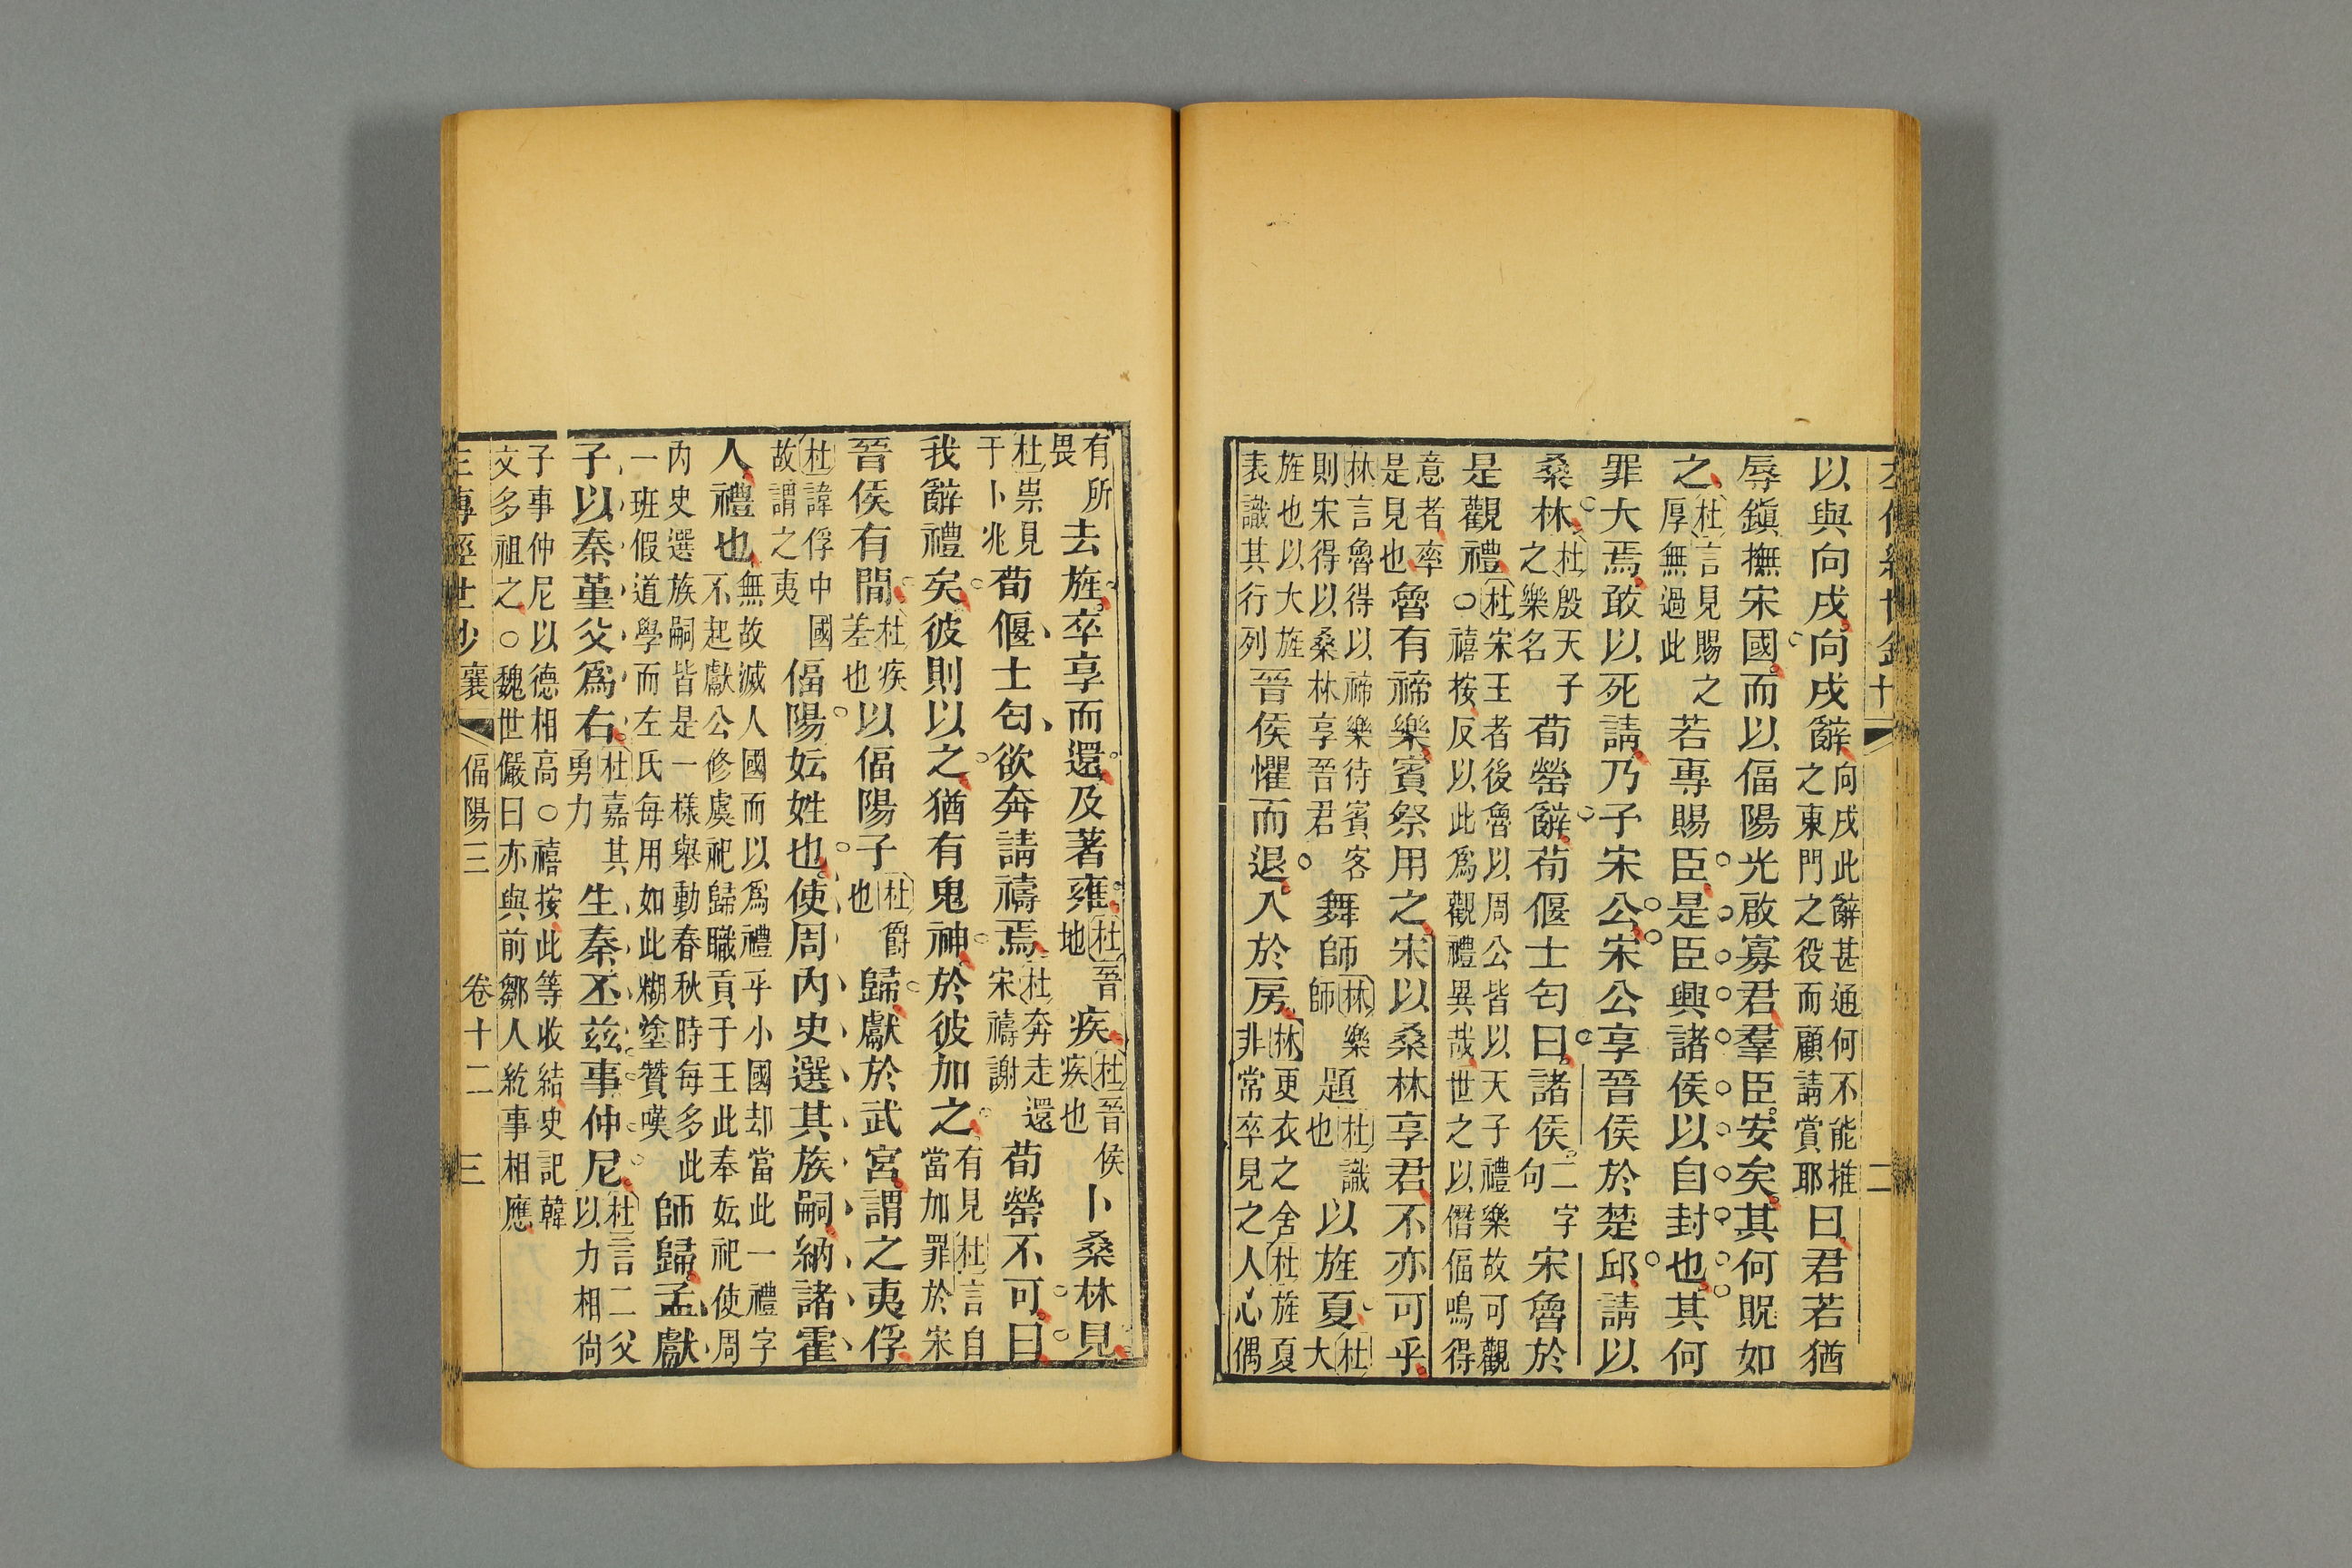 以與向戌向戌辭向戌此辭甚通何不能推之東門之役而顧請賞耶曰君若猶
辱鎮撫宋國而以偪陽光啟寡君羣臣安矣其何貺如
之杜言見賜之厚無過此若專賜臣是臣興諸侯以自封也其何
罪大焉敢以死請乃子宋公宋公享晉侯於楚邱請以
桑林杜殷天子之樂名荀罃辭荀偃士匄曰諸侯二字句宋魯於
是觀禮杜宋王者後魯以周公皆以天子禮樂故可觀○禧按反以此為觀禮異哉世之以僭偪鳴得
意者率是見也魯有禘樂賓祭用之宋以桑林享君不亦可乎
林言魯得以禘樂待賓客則宋得以桑林享晉君舞師林樂師題杜識也以旌夏杜大
旌也以大旌表識其行列晉侯懼而退入於房林更衣之舍杜旌夏非常卒見之人心偶
二
有所畏去旌卒享而還及著雍杜晉地疾杜晉侯疾也卜桑林見
杜祟見于卜兆荀偃士匄欲奔請禱焉杜奔走還宋禱謝荀罃不可曰
我辭禮矣彼則以之猶有鬼神於彼加之有見杜言自當加罪於宋
晉侯有間杜疾差也以偪陽子杜爵也歸獻於武宮謂之夷俘
杜諱俘中國故謂之夷偪陽妘姓也使周內史選其族嗣納諸霍
人禮也無故滅人國而以為禮乎小國却當此一禮字不起獻公修虞祀歸職貢于王此奉妘祀使周
內史選族嗣皆是一樣舉動春秋時每多此一班假道學而左氏每用如此糊塗贊嘆師歸孟獻
子以秦堇父為右杜嘉其勇力生秦丕茲事仲尼杜言二父以力相尚
子事仲尼以德相高○禧按此等收結史記韓文多祖之○魏世儼曰亦與前鄒人紇事相應
三傳經世鈔 襄 偪陽三 卷十二 三